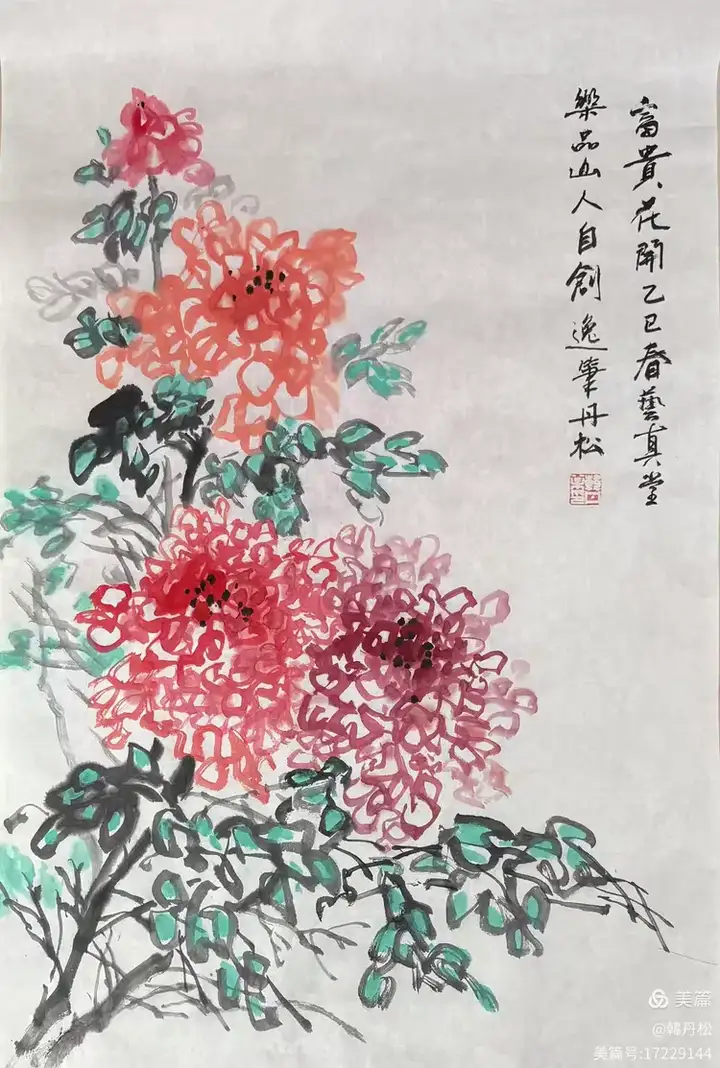 富貴花開乙巳春藝真堂
樂品山人自創逸筆丹松
美篇
@韓丹松
美篇号:17229144